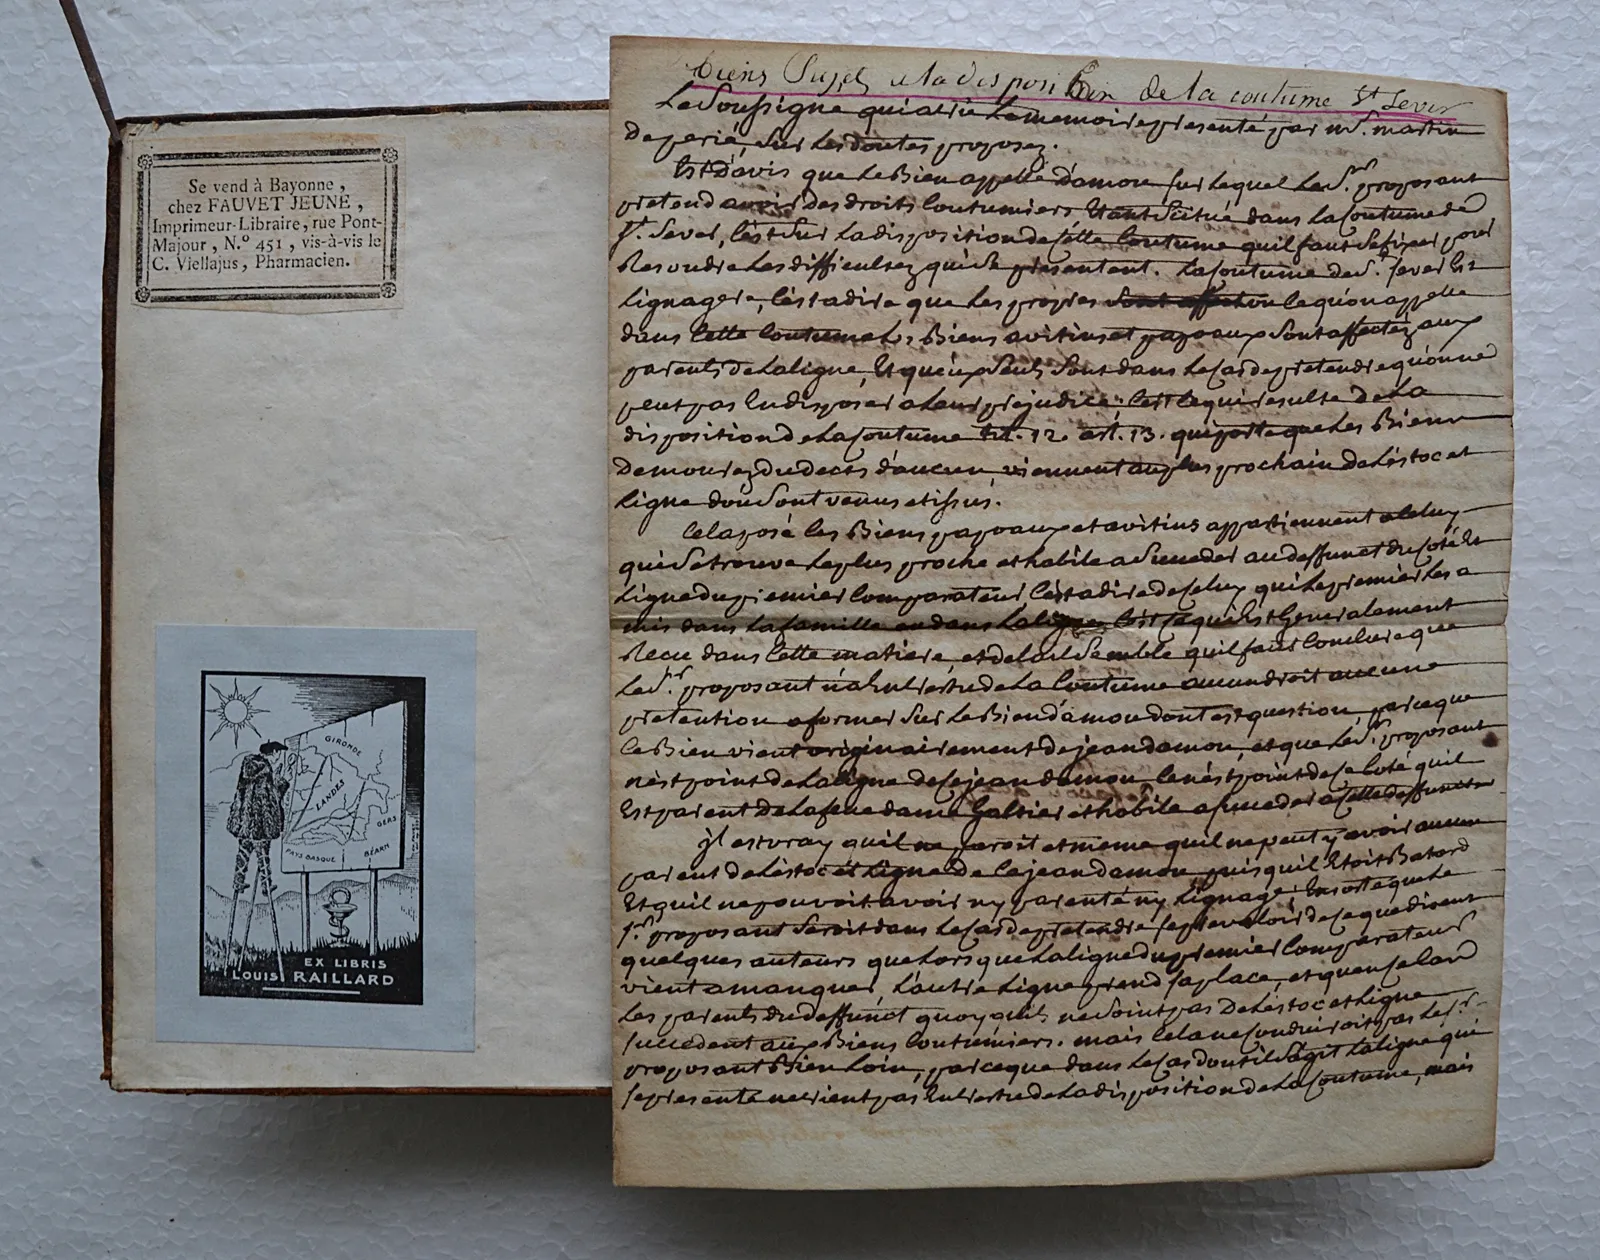 Se vend à Bayonne,
chez FAUVET JEUNE,
Imprimeur-Libraire, rue Pont-
Majour, N.° 451, vis-à-vis le
C. Viellajus, Pharmacien.
GIRONDE
LANDES
GERS
PAYS BASQUE
BÉARN
EX LIBRIS
LOUIS RAILLARD
biens Sujets a la disposition de la coutume St Sever
Le Soussigne qui a lû Le memoire presenté par mr. martin
Deperié, Sur Les doutes proposez.
Est d'avis que Le Bien appelle damou sur Lequel Le Sr. proposant
pretend avoir Des droits Coutumiers Etant Scitué dans La Coutume de
St. Sever, C'est Sur La disposition de Celle Coutume quil faut Se fixer pour
Resoudre Les difficultez qui Se presentent. La Coutume de St. Sever Est
Lignagere, C'est a dire que Les propres Ce qu'on appelle
dans Cette Coutume Les Biens avitins et papoaux Sont affectez aux
parents de La ligne, Et qu'eux Seuls Sont dans Le Cas de pretendre qu'on ne
peut pas En disposer a Leur prejudice; C'est Ce qui resulte de La
disposition de La Coutume tit. 12. art. 13. qui porte que Les Biens
Demourez du deces d'aucun, viennent au plus prochain de L'estoc et
Ligne d'ou Sont venus et issus.
Cela posé Les Biens papoaux et avitins appartiennent a Celuy
qui Se trouve Le plus proche et habile a Succeder au deffunct du Coté Et
Ligne du premier Comparateur C'est a dire de Celuy qui Le premier Les a
mis dans La famille ou dans La ligne C'est Ce qui Est Generalement
Recu dans Cette matiere, et de La il Semble quil faut Conclure que
Le Sr. proposant n'a En Vertu de La Coutume aucun droit aucune
pretention a former Sur Le Bien d'amou dont est question, parceque
Ce Bien vient originairement de jean damou, et que Le Sr. proposant
n'est point de La ligne de Ce jean damou, Ce n'est point de Ce Coté quil
Est parent de La feue dame Galtier et habile a Succeder a Celle deffuncte
jl est vray quil ne paroit et meme quil ne peut y avoir aucun
parent de L'estoc et Ligne de Ce jean damou puis quil Etoit Batard
Et quil ne pouvoit avoir ny parenté ny Lignage; En sorte que Le
Sr. proposant Seroit dans Le Cas de pretendre Se prevaloir de Ce que disent
quelques auteurs que Lors que La ligne du premier Comparateur
vient a manquer, L'autre Ligne prend Sa place, et qu'en Ce Cas
Les parents du deffunct quoy quils ne Soint pas De L'estoc et Ligne
Succedent aux Biens Coutumiers. mais Cela ne Conduiroit pas Le Sr.
proposant Bien Loin, parceque dans Le Cas dont il S'agit La ligne qui
Se presente ne vient pas En Vertu de La disposition de La Coutume, mais